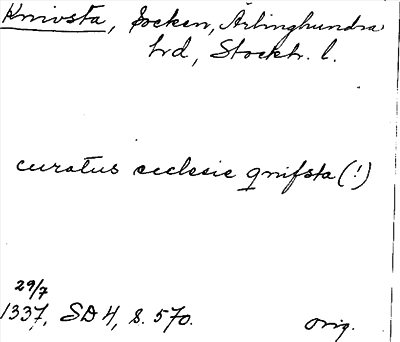 Knivsta, Socken, Ärlinghundra
hd, Stockh. l.
curatus ecclesie qnifsta (!)
29/7
1337, SD 4, s. 570.
orig.